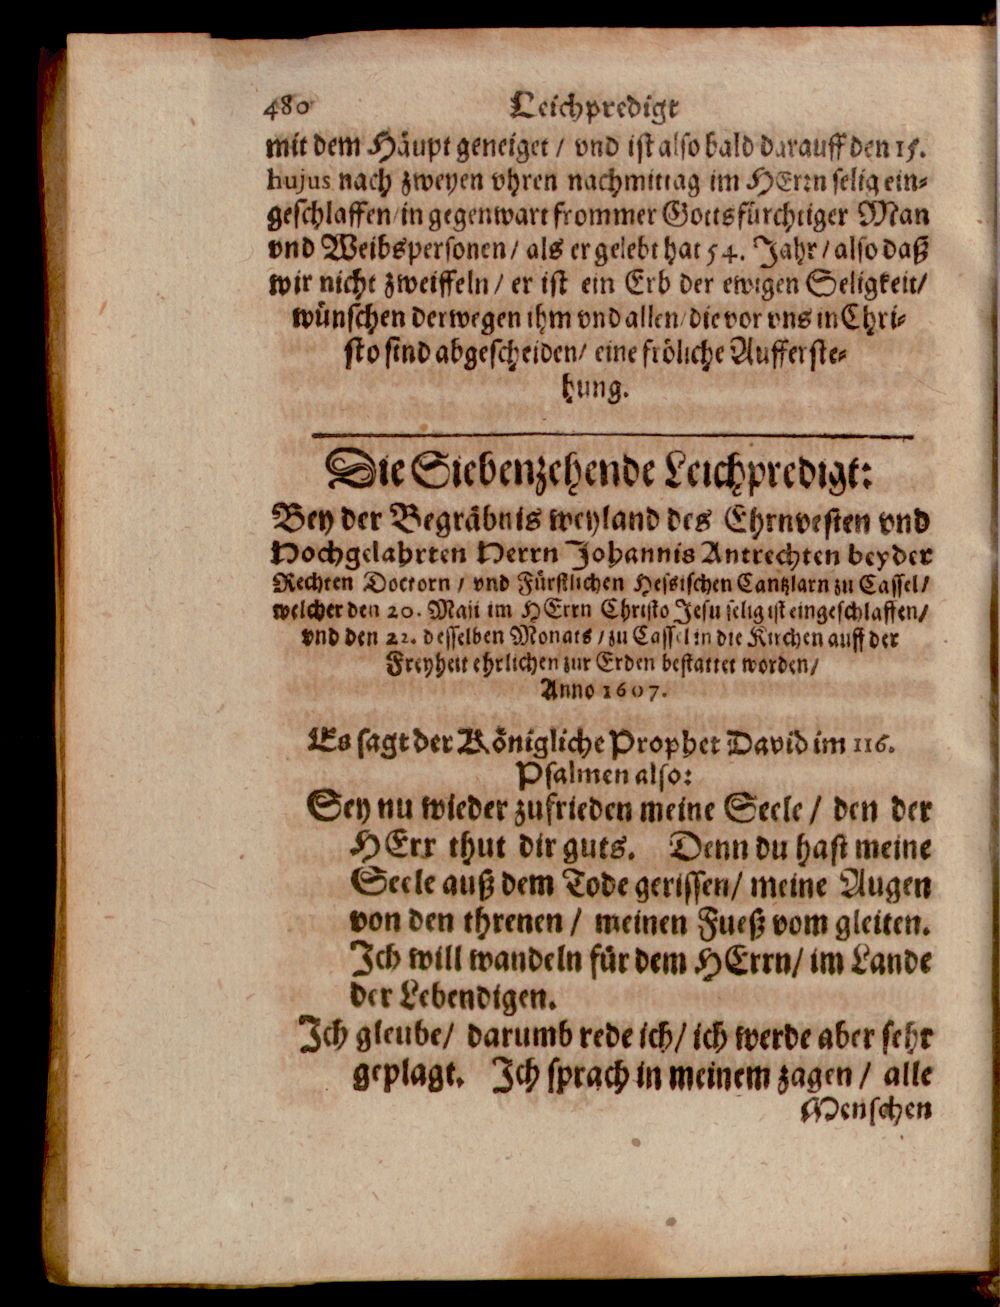 480 Leichpredigt
mit dem Häupt geneiget / vnd ist also bald darauff den 15.
hujus nach zweyen vhren nachmittag im HErrn selig ein-
geschlaffen / in gegenwart frommer Gottsfürchtiger Man
vnd Weibspersonen / als er gelebt hat 54. Jahr / also daß
wir nicht zweiffeln / er ist ein Erb der ewigen Seligkeit /
wünschen derwegen ihm vnd allen / die vor vns in Chri-
sto sind abgescheiden / eine fröliche Aufferste-
hung.
Die Siebenzehende Leichpredigt:
Bey der Begräbnis weyland des Ehrnvesten vnd
Hochgelahrten Herrn Johannis Antrechten beyder
Rechten Doctorn / vnd Fürstlichen Hessischen Cantzlarn zu Cassel /
welcher den 20. Maii im HErrn Christo Jesu selig ist eingeschlaffen /
vnd den 22. desselben Monats / zu Cassel in die Kirchen auff der
Freyheit ehrlichen zur Erden bestattet worden /
Anno 1607.
Es sagt der Königliche Prophet David im 116.
Psalmen also:
Sey nu wieder zufrieden meine Seele / den der
HErr thut dir guts. Denn du hast meine
Seele auß dem Tode gerissen / meine Augen
von den threnen / meinen Fueß vom gleiten.
Ich will wandeln für dem HErrn / im Lande
der Lebendigen.
Ich gleube / darumb rede ich / ich werde aber sehr
geplagt. Ich sprach in meinem zagen / alle
Menschen